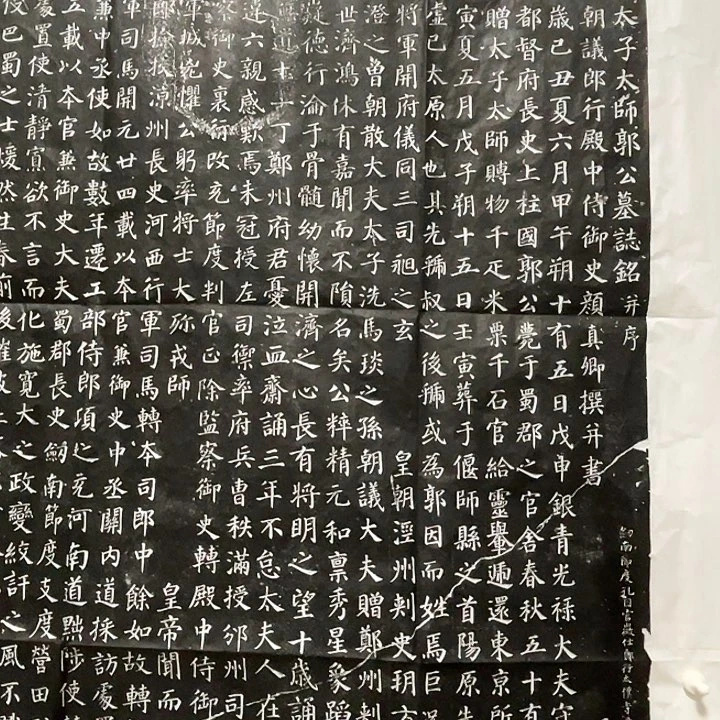 太子太師郭公墓誌銘并序
朝議郎行殿中侍御史顏真卿撰并書
劒南節度孔目官
歲己丑夏六月甲午朔十有五日戊申銀青光祿大夫守
都督府長史上柱國郭公薨于蜀郡之官舍春秋五十有
贈太子太師賻物千疋米粟千石官給靈轝遞還東京所
寅夏五月戊子朔十五日壬寅葬于偃師縣之首陽原先
虛已太原人也其先虢叔之後虢或為郭因而姓焉巨
將軍開府儀同三司昶之玄 皇朝涇州刺史玥
澄之曾朝散大夫太子洗馬琰之孫朝議大夫贈鄭州刺
世濟鴻休有嘉聞而不隕名矣公粹精元和禀秀星象蹈
凝德行淪于骨髓幼懷開濟之心長有將明之望十歲誦
無道士十一丁鄭州府君憂泣血齋誦三年不怠太夫人在
六親感歎焉未冠授左司禦率府兵曹秩滿授邠州司
察御史裏行改充節度判官正除監察御史轉殿中侍御
軍城兇懼公躬率將士大殄戎師 皇帝聞而
涼州長史河西行軍司馬轉本司郎中餘如故轉
軍司馬開元廿四載以本官兼御史中丞關內道採訪處置
兼中丞使如故數年遷工部侍郎項之充河南道黜陟使
五載以本官兼御史大夫蜀郡長史劒南節度支度營田
處置使清靜寡欲不言而化施寬大之政變絞訐之風不
巴蜀之士煖然生春前後